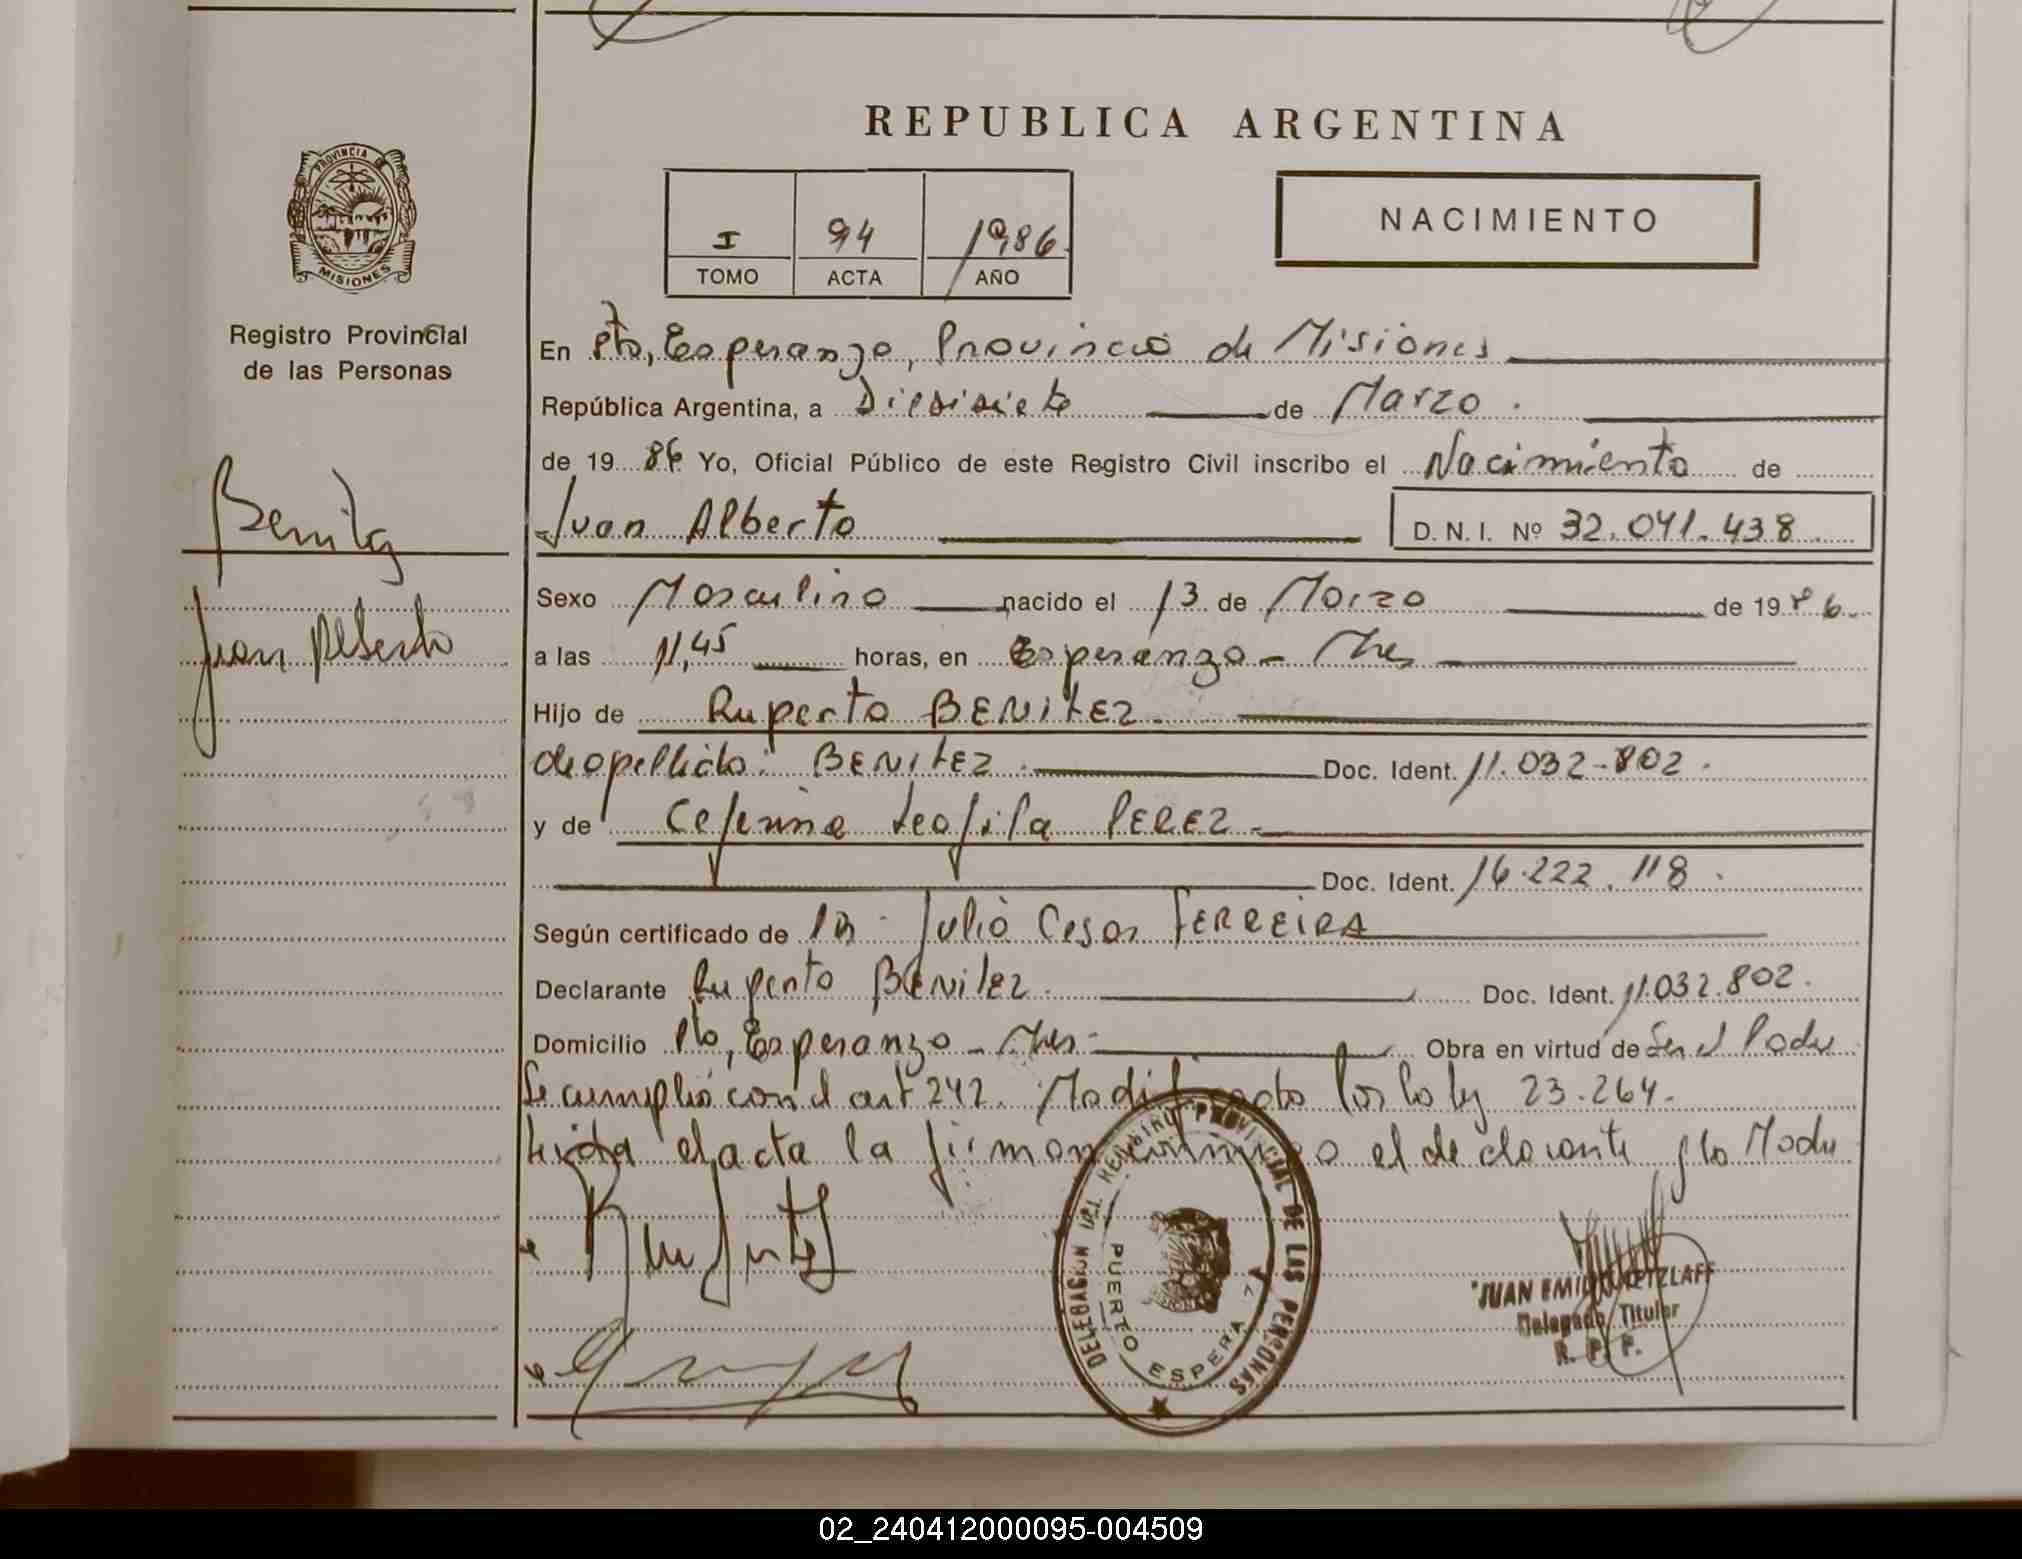 REPUBLICA ARGENTINA
PROVINCIA DE
MISIONES
Registro Provincial
de las Personas
I 94 1986
TOMO ACTA AÑO
NACIMIENTO
En Pto, Esperanza, Provincia de Misiones
República Argentina, a Diesisiete de Marzo.
de 19 86 Yo, Oficial Público de este Registro Civil inscribo el Nacimiento de
Juan Alberto D. N. I. Nº 32.041.438
Benitez
Juan Alberto
Sexo Masculino nacido el 13 de Marzo de 19 86
a las 11,45 horas, en Esperanza - Mnes
Hijo de Ruperto BENITEZ.
de apellido: BENITEZ. Doc. Ident. 11.032-802.
y de Ceferina Teofila PEREZ-
Doc. Ident. 16.222.118.
Según certificado de Dr. Julio Cesar FERREIRA
Declarante Ruperto BENITEZ. Doc. Ident. 11.032.802.
Domicilio Pto, Esperanza - Mnes- Obra en virtud de Ser el Padre
Se cumplió con el art 242. Modificado por la ley 23.264.
Leida el acta la firman conmigo el declarante y la Madre
DELEGACION DEL REGISTRO PROVINCIAL DE LAS PERSONAS
PUERTO ESPERANZA
JUAN EMILIO RETZLAFF
Delegado Titular
R. P. P.
02_240412000095-004509